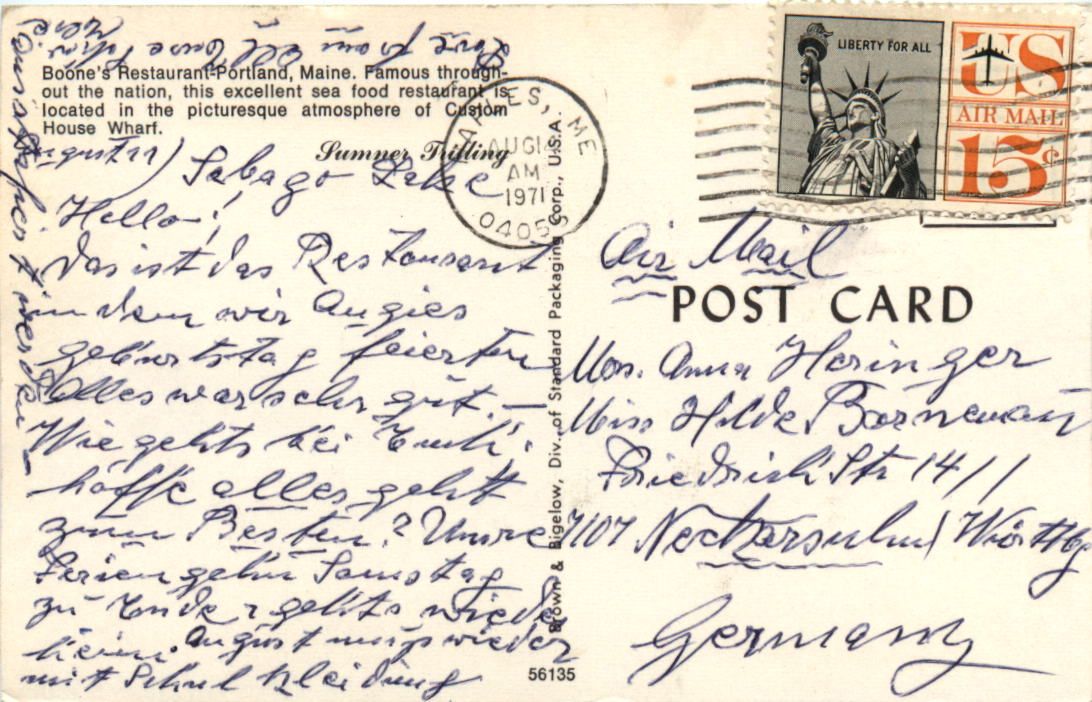 Boone's Restaurant-Portland, Maine. Famous through-
out the nation, this excellent sea food restaurant is
located in the picturesque atmosphere of Custom
House Wharf.
Sumner Trifling
August 11) Sebago Lake
Hello!
Das ist das Restaurant
in dem wir Angies
geburtstag feierten
Alles war sehr gut. —
Wie gehts bei Euch?
hoffe alles geht
zum Besten? Unsre
Ferien gehn Samstag
zu Ende & gehts wieder
heim. August muss wieder
mit Schul kleidung
werden
Love to you all
NAPLES, ME
AUG 14
AM
1971
0405
LIBERTY FOR ALL
US
AIR MAIL
15¢
Brown & Bigelow, Div. of Standard Packaging Corp., U.S.A.
56135
Air Mail
POST CARD
Mrs. Anna Heringer
Miss Hilde Bornemann
Friedrich Str 14/1
7107 Neckarsulm/Württbg
Germany